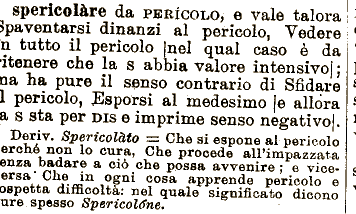 spericolàre da PERÍCOLO, e vale talora
Spaventarsi dinanzi al pericolo, Vedere
in tutto il pericolo [nel qual caso è da
ritenere che la s abbia valore intensivo];
ma ha pure il senso contrario di Sfidare
il pericolo, Esporsi al medesimo [e allora
la s sta per DIS e imprime senso negativo].
Deriv. Spericolàto = Che si espone al pericolo
perché non lo cura, Che procede all'impazzata
senza badare a ciò che possa avvenire; e vice-
versa Che in ogni cosa apprende pericolo e
sospetta difficoltà: nel quale significato dicono
pure spesso Spericolóne.